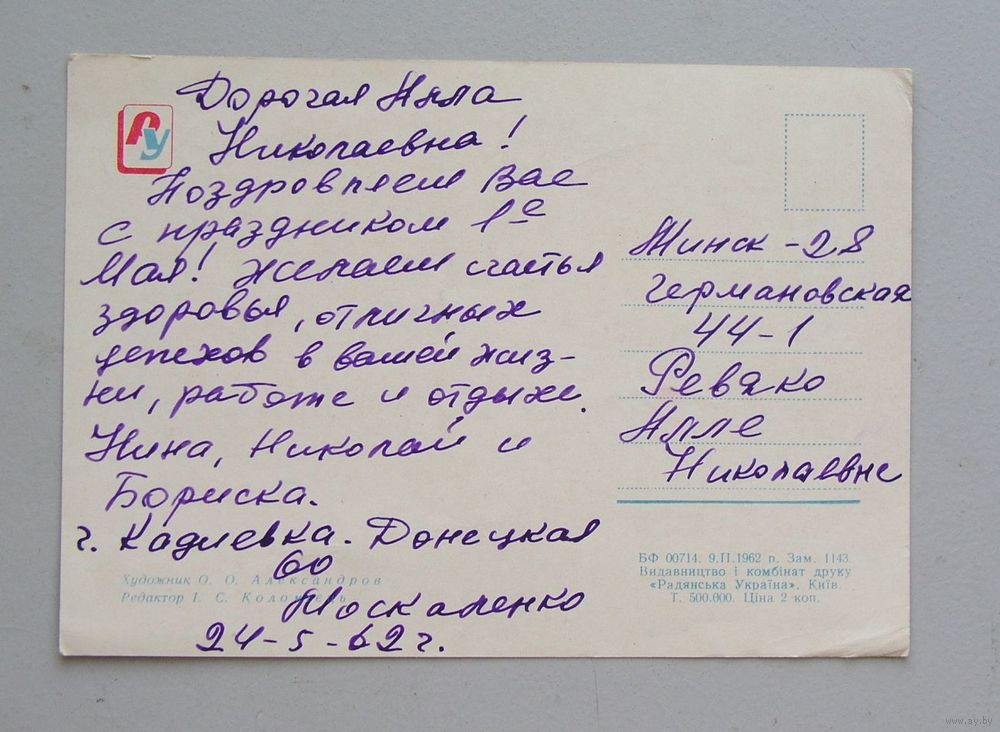 АУ
Дорогая Алла
Николаевна!
Поздравляем Вас
с праздником 1-е
Мая! Желаем счастья
здоровья, отличных
успехов в вашей жиз-
ни, работе и отдыхе.
Нина, Николай и
Бориска.
г. Кадиевка. Донецкая
60
Москаленко
24-5-62 г.
Художник О. О. Александров
Редактор І. С. Коломієць
Минск-28
Германовская
44-1
Ревяко
Алле
Николаевне
БФ 00714. 9.II.1962 р. Зам. 1143.
Видавництво і комбінат друку
«Радянська Україна», Київ.
Т. 500.000. Ціна 2 коп.
www.ay.by